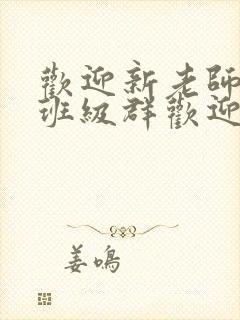 歡迎新老師
班級群歡迎
姜鳴